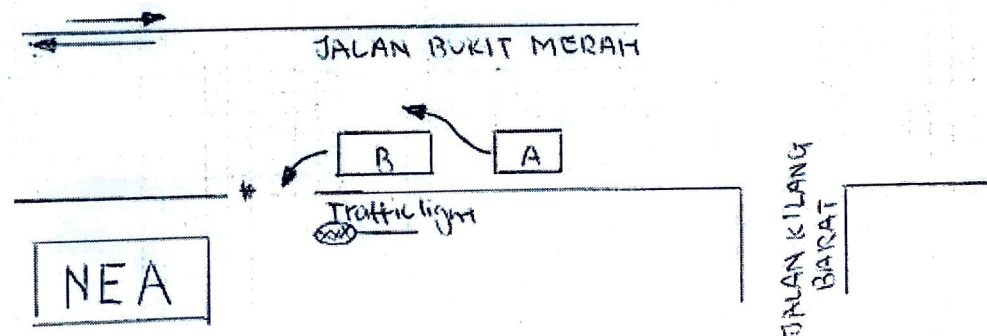 JALAN BUKIT MERAH
B
A
Traffic light
NEA
JALAN KILANG
BARAT